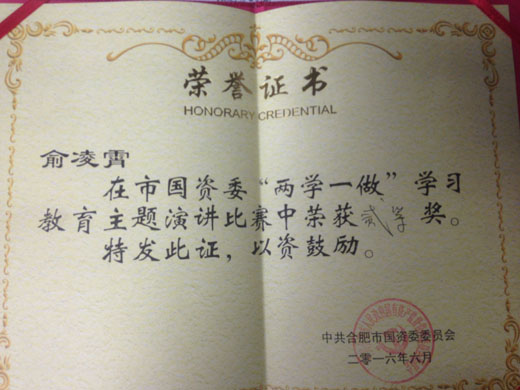 荣誉证书
HONORARY CREDENTIAL
俞凌霄
在市国资委“两学一做”学习
教育主题演讲比赛中荣获贰等奖。
特发此证，以资鼓励。
中共合肥市国资委委员会
二零一六年六月